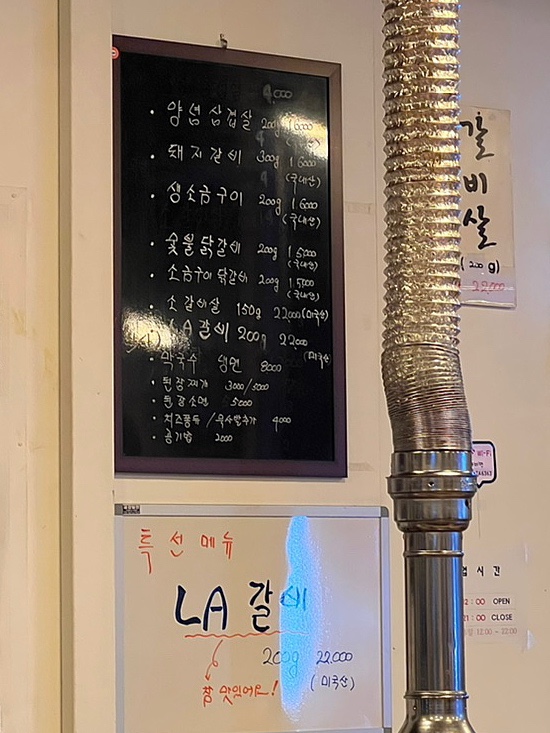 4,000
· 양념삼겹살 200g 16000
· 돼지갈비 300g 16000
(국내산)
· 생소금구이 200g 16000
(국내산)
· 숯불닭갈비 200g 15,000
(국내산)
· 소금구이 닭갈비 200g 15,000
(국내산)
· 소갈비살 150g 22,000(미국산)
· LA갈비 200g 22,000
(미국산)
· 막국수 냉면 8000
· 된장찌개 3000/5000
· 된장소면 5000
· 치즈퐁듀 / 4000
· 공기밥 2000
특선메뉴
LA 갈비
200g 22,000
(미국산)
참 맛있어요!
갈비살
(200g)
22,000
Wi-Fi
시간
:00 OPEN
21:00 CLOSE